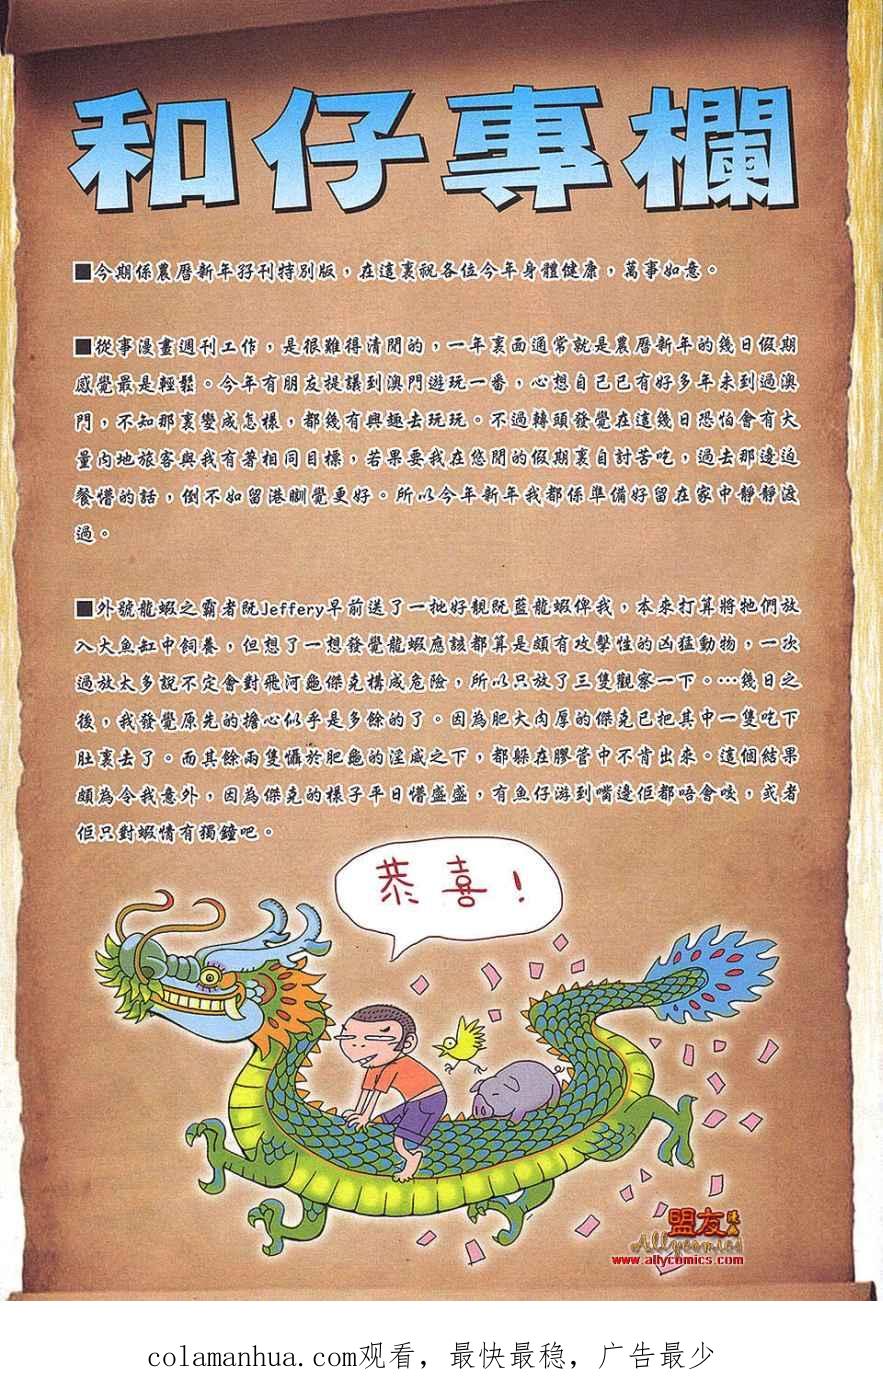 和仔專欄
■今期係農曆新年孖刊特別版，在這裏祝各位今年身體健康，萬事如意。
■從事漫畫週刊工作，是很難得清閒的，一年裏面通常就是農曆新年的幾日假期
感覺最是輕鬆。今年有朋友提議到澳門遊玩一番，心想自己已有好多年未到過澳
門，不知那裏變成怎樣，都幾有興趣去玩玩。不過轉頭發覺在這幾日恐怕會有大
量內地旅客與我有著相同目標，若果要我在悠閒的假期裏自討苦吃，過去那邊迫
餐懵的話，倒不如留港瞓覺更好。所以今年新年我都係準備好留在家中靜靜渡
過。
■外號龍蝦之霸者既Jeffery早前送了一批好靚既藍龍蝦俾我，本來打算將牠們放
入大魚缸中飼養，但想了一想發覺龍蝦應該都算是頗有攻擊性的凶猛動物，一次
過放太多說不定會對飛河龜傑克構成危險，所以只放了三隻觀察一下。…幾日之
後，我發覺原先的擔心似乎是多餘的了。因為肥大肉厚的傑克已把其中一隻吃下
肚裏去了。而其餘兩隻懾於肥龜的淫威之下，都躲在膠管中不肯出來。這個結果
頗為令我意外，因為傑克的樣子平日懵盛盛，有魚仔游到嘴邊佢都唔會咬，或者
佢只對蝦情有獨鐘吧。
恭喜！
盟友漫畫
Allycomics
www.allycomics.com
colamanhua.com观看，最快最稳，广告最少